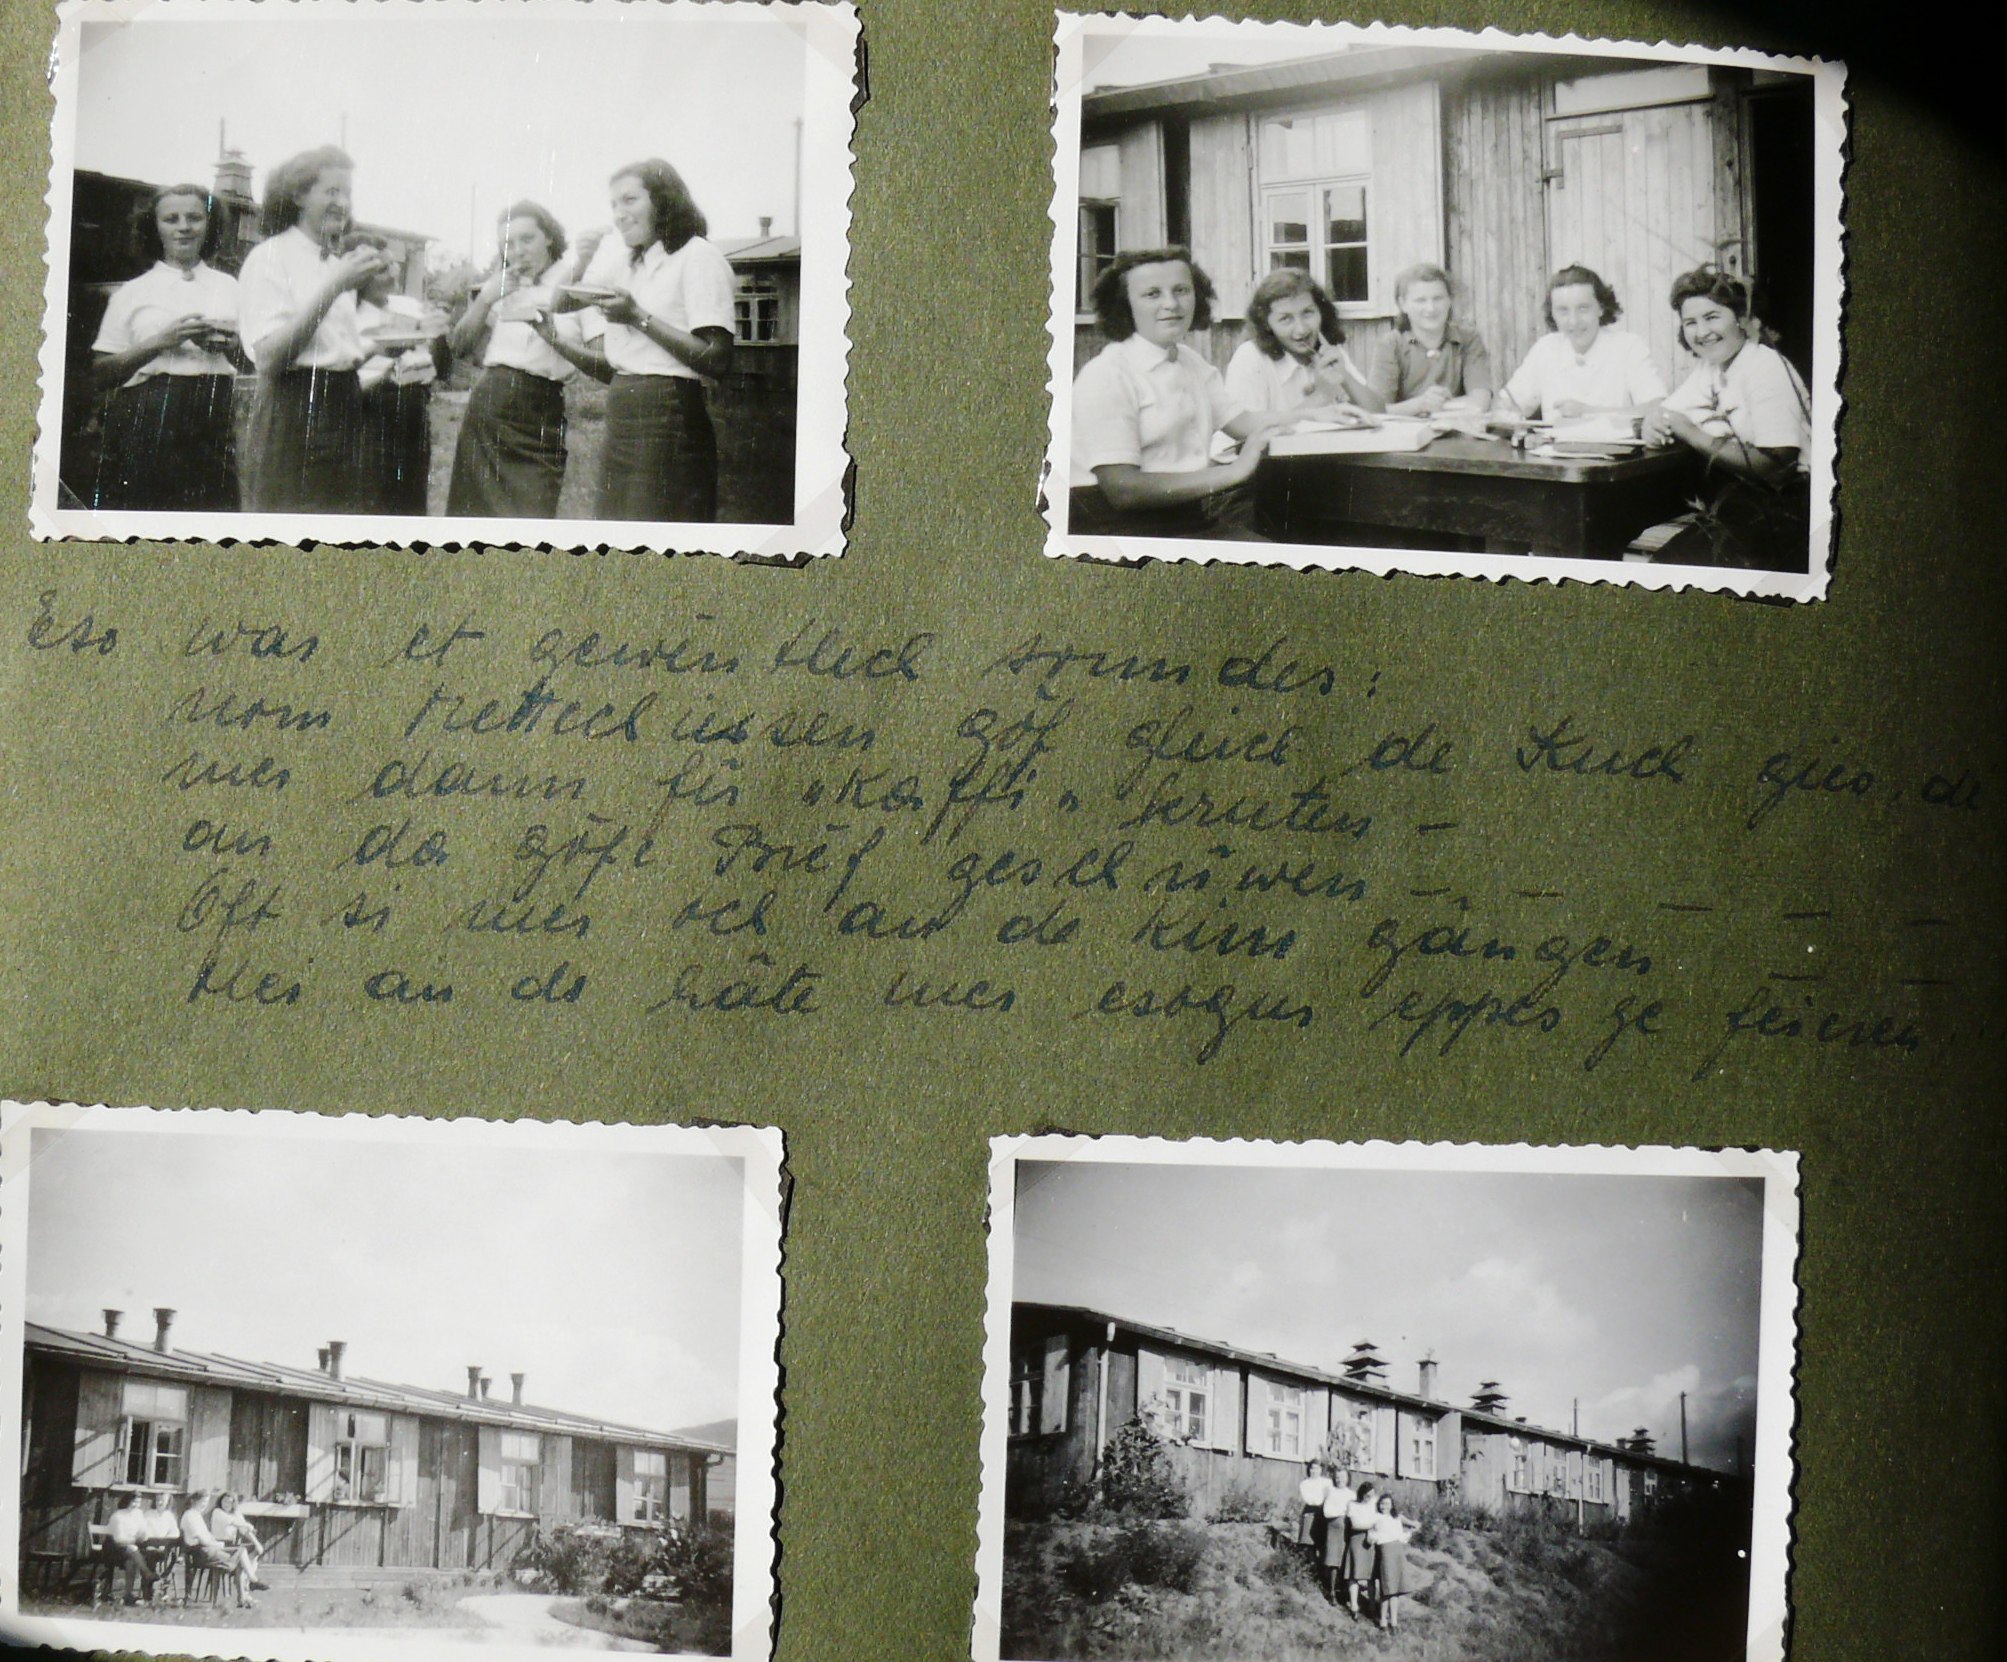 Eso war et gewéntlech sonndes:
nom Mettechiessen göf gleich de Kuch gies, de
mer dann fir "Kaffi" kruten -
an da göfe Brief geschriwen - . - - - -
Oft si mer och an de Kino gángen - -
Mei an do háte mer esogur eppes ze feieren.